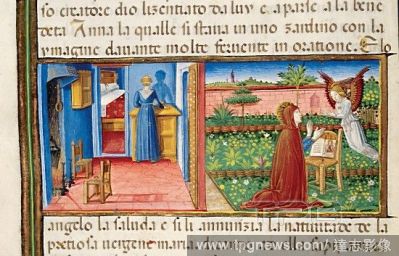 so creatore dio lizentiato da luy e aparse a la bene
deta Anna la qualle si staua in uno zardino con la
ymagine dauante molte feruente in oratione. E lo
angelo la saluda e si li annunzia la natiuitade de la
pretiosa uergene maria
www.tpgnews.com/達志影像